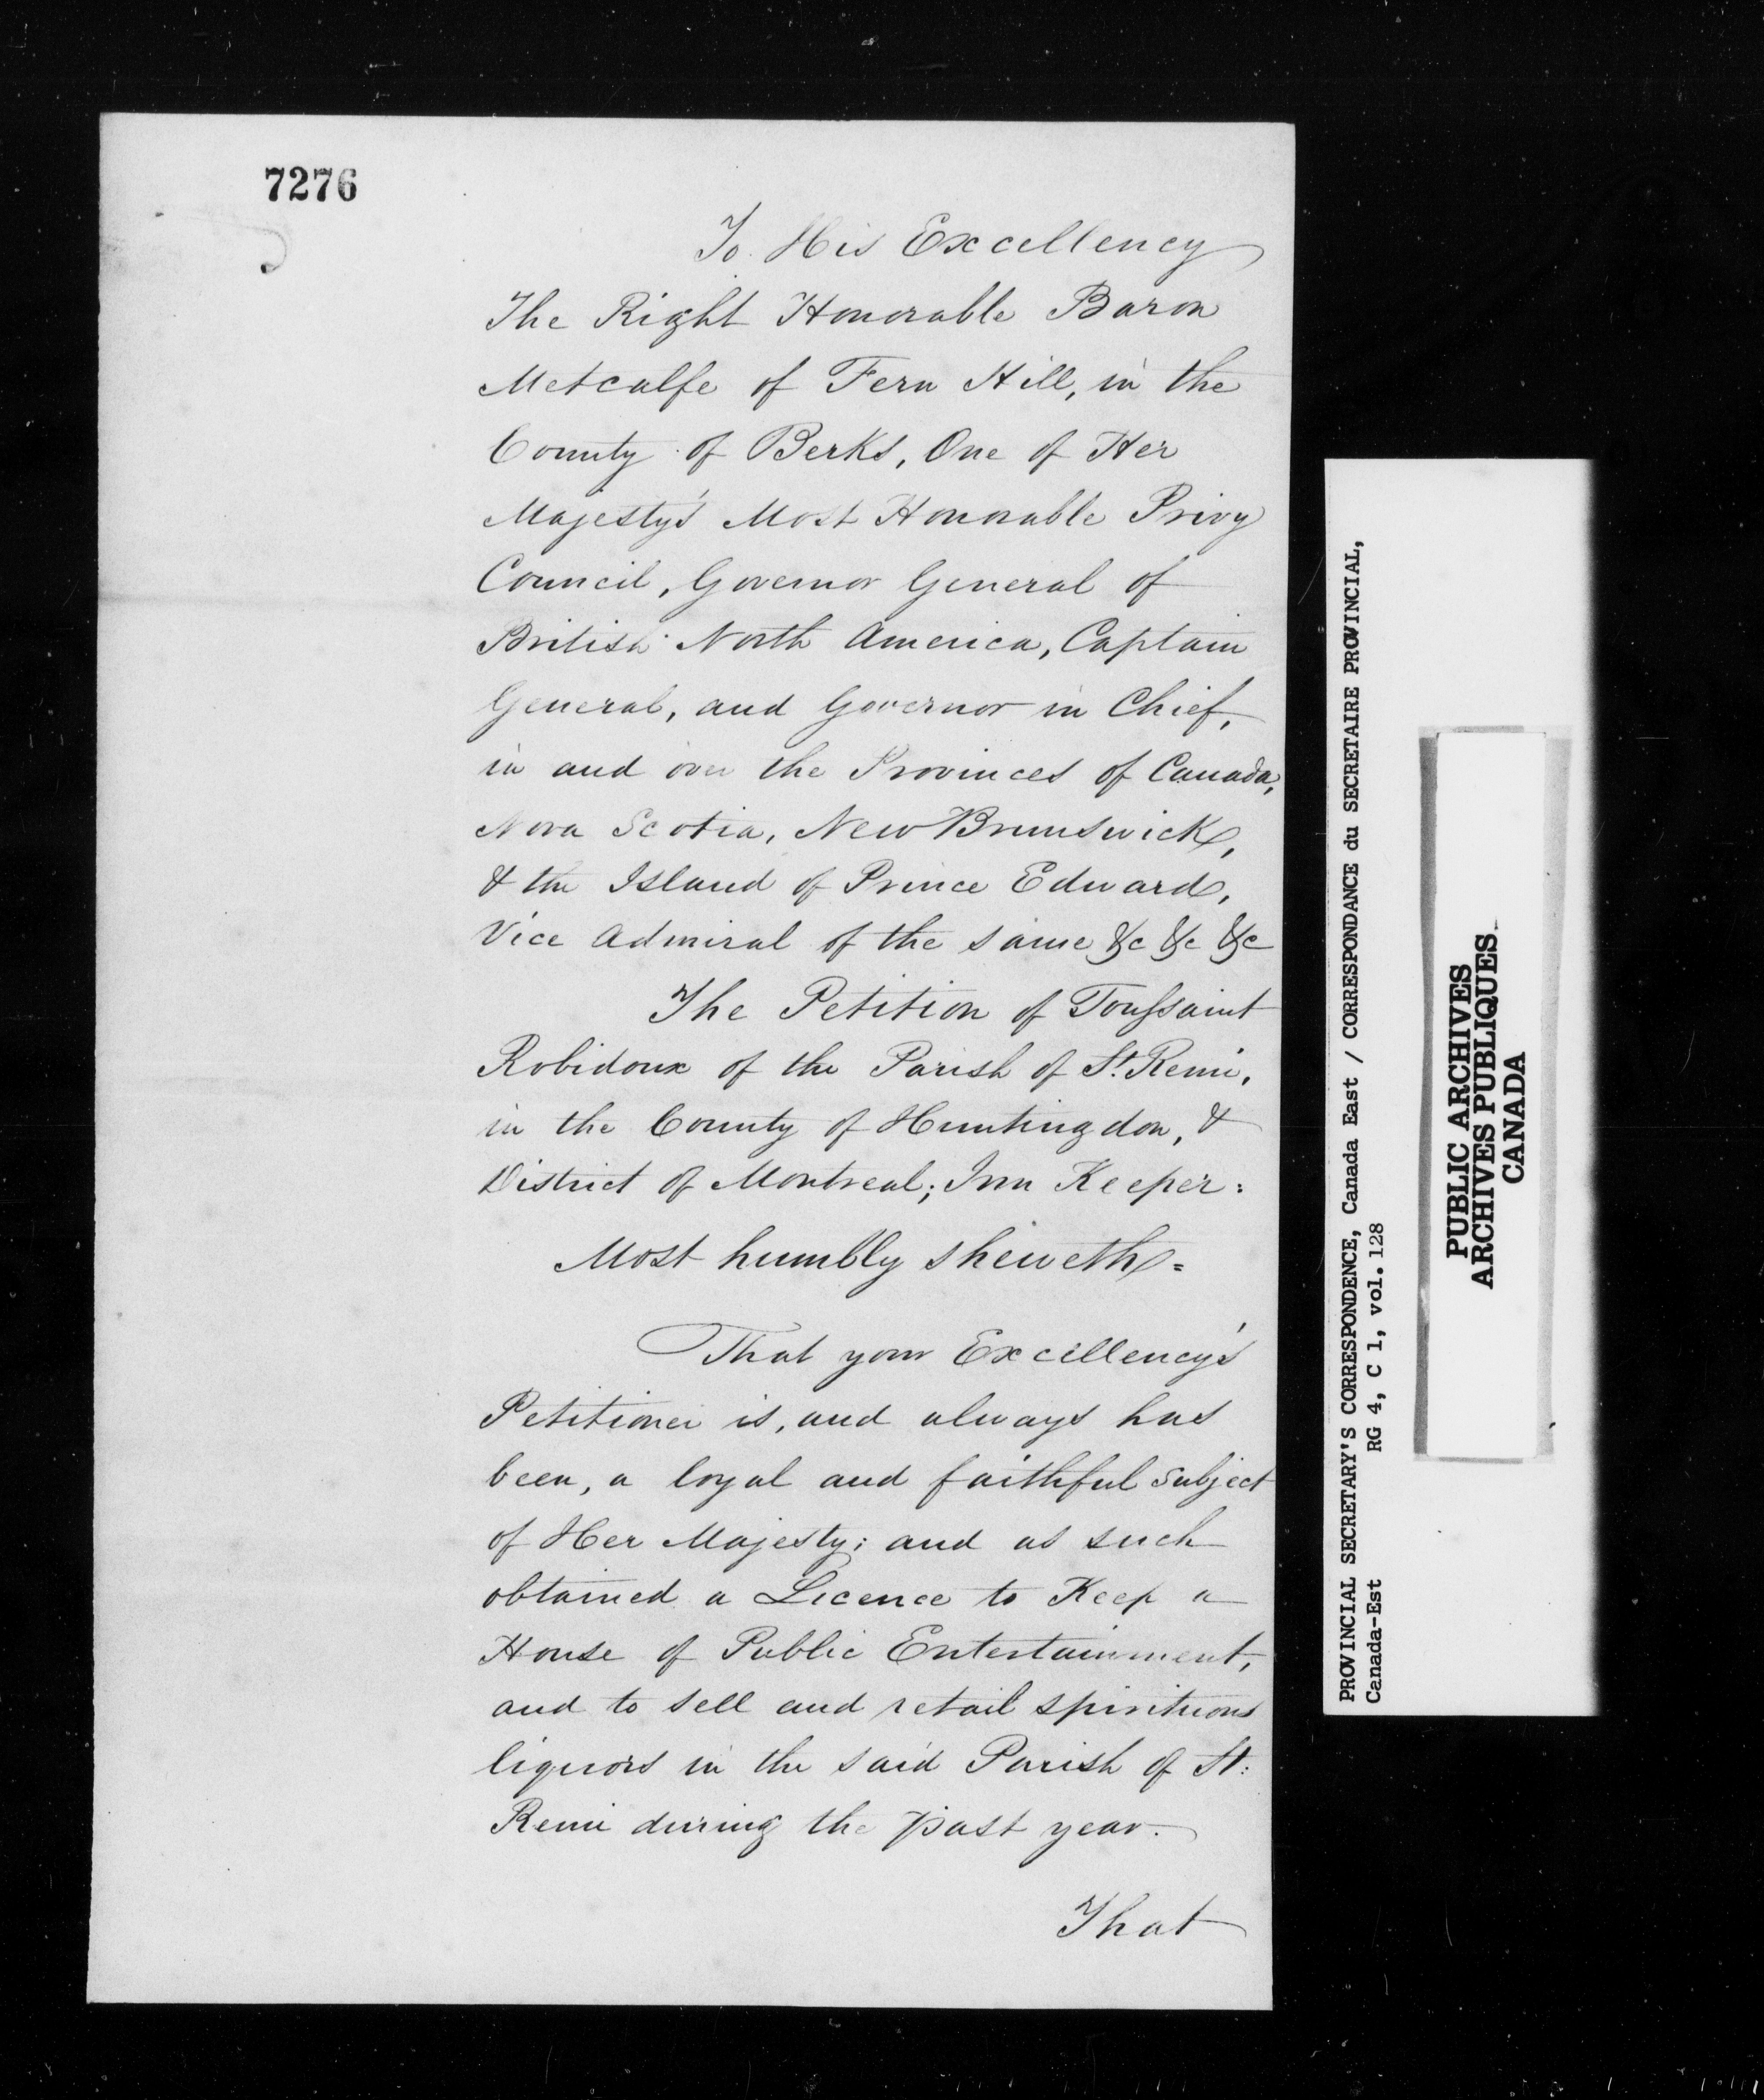 7276
To His Excellency
The Right Honorable Baron
Metcalfe of Fern Hill, in the
County of Berks, One of Her
Majesty's Most Honorable Privy
Council, Governor General of
British North America, Captain
General, and Governor in Chief,
in and over the Provinces of Canada,
Nova Scotia, New Brunswick,
& the Island of Prince Edward,
Vice Admiral of the same &c &c &c
The Petition of Toussaint
Robidoux of the Parish of St. Remi,
in the County of Huntingdon, &
District of Montreal; Inn Keeper:
Most humbly sheweth=
That your Excellency's
Petitioner is, and always has
been, a loyal and faithful subject
of Her Majesty; and as such
obtained a Licence to Keep a
House of Public Entertainment,
and to sell and retail spirituous
liquors in the said Parish of St:
Remi during the past year.
That
PROVINCIAL SECRETARY'S CORRESPONDENCE, Canada East / CORRESPONDANCE du SECRETAIRE PROVINCIAL,
Canada-Est RG 4, C 1, vol. 128
PUBLIC ARCHIVES
ARCHIVES PUBLIQUES
CANADA